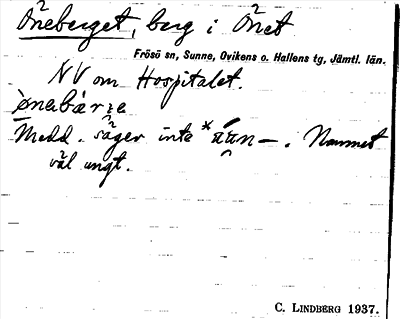 Öneberget, berg i Önet
Frösö sn, Sunne, Ovikens o. Hallens tg, Jämtl. län.
NV om Hospitalet.
ònabær̀ɛ
Medd. säger inte *ɯ́ɯn–. Namnet
väl ungt.
C. LINDBERG 1937.